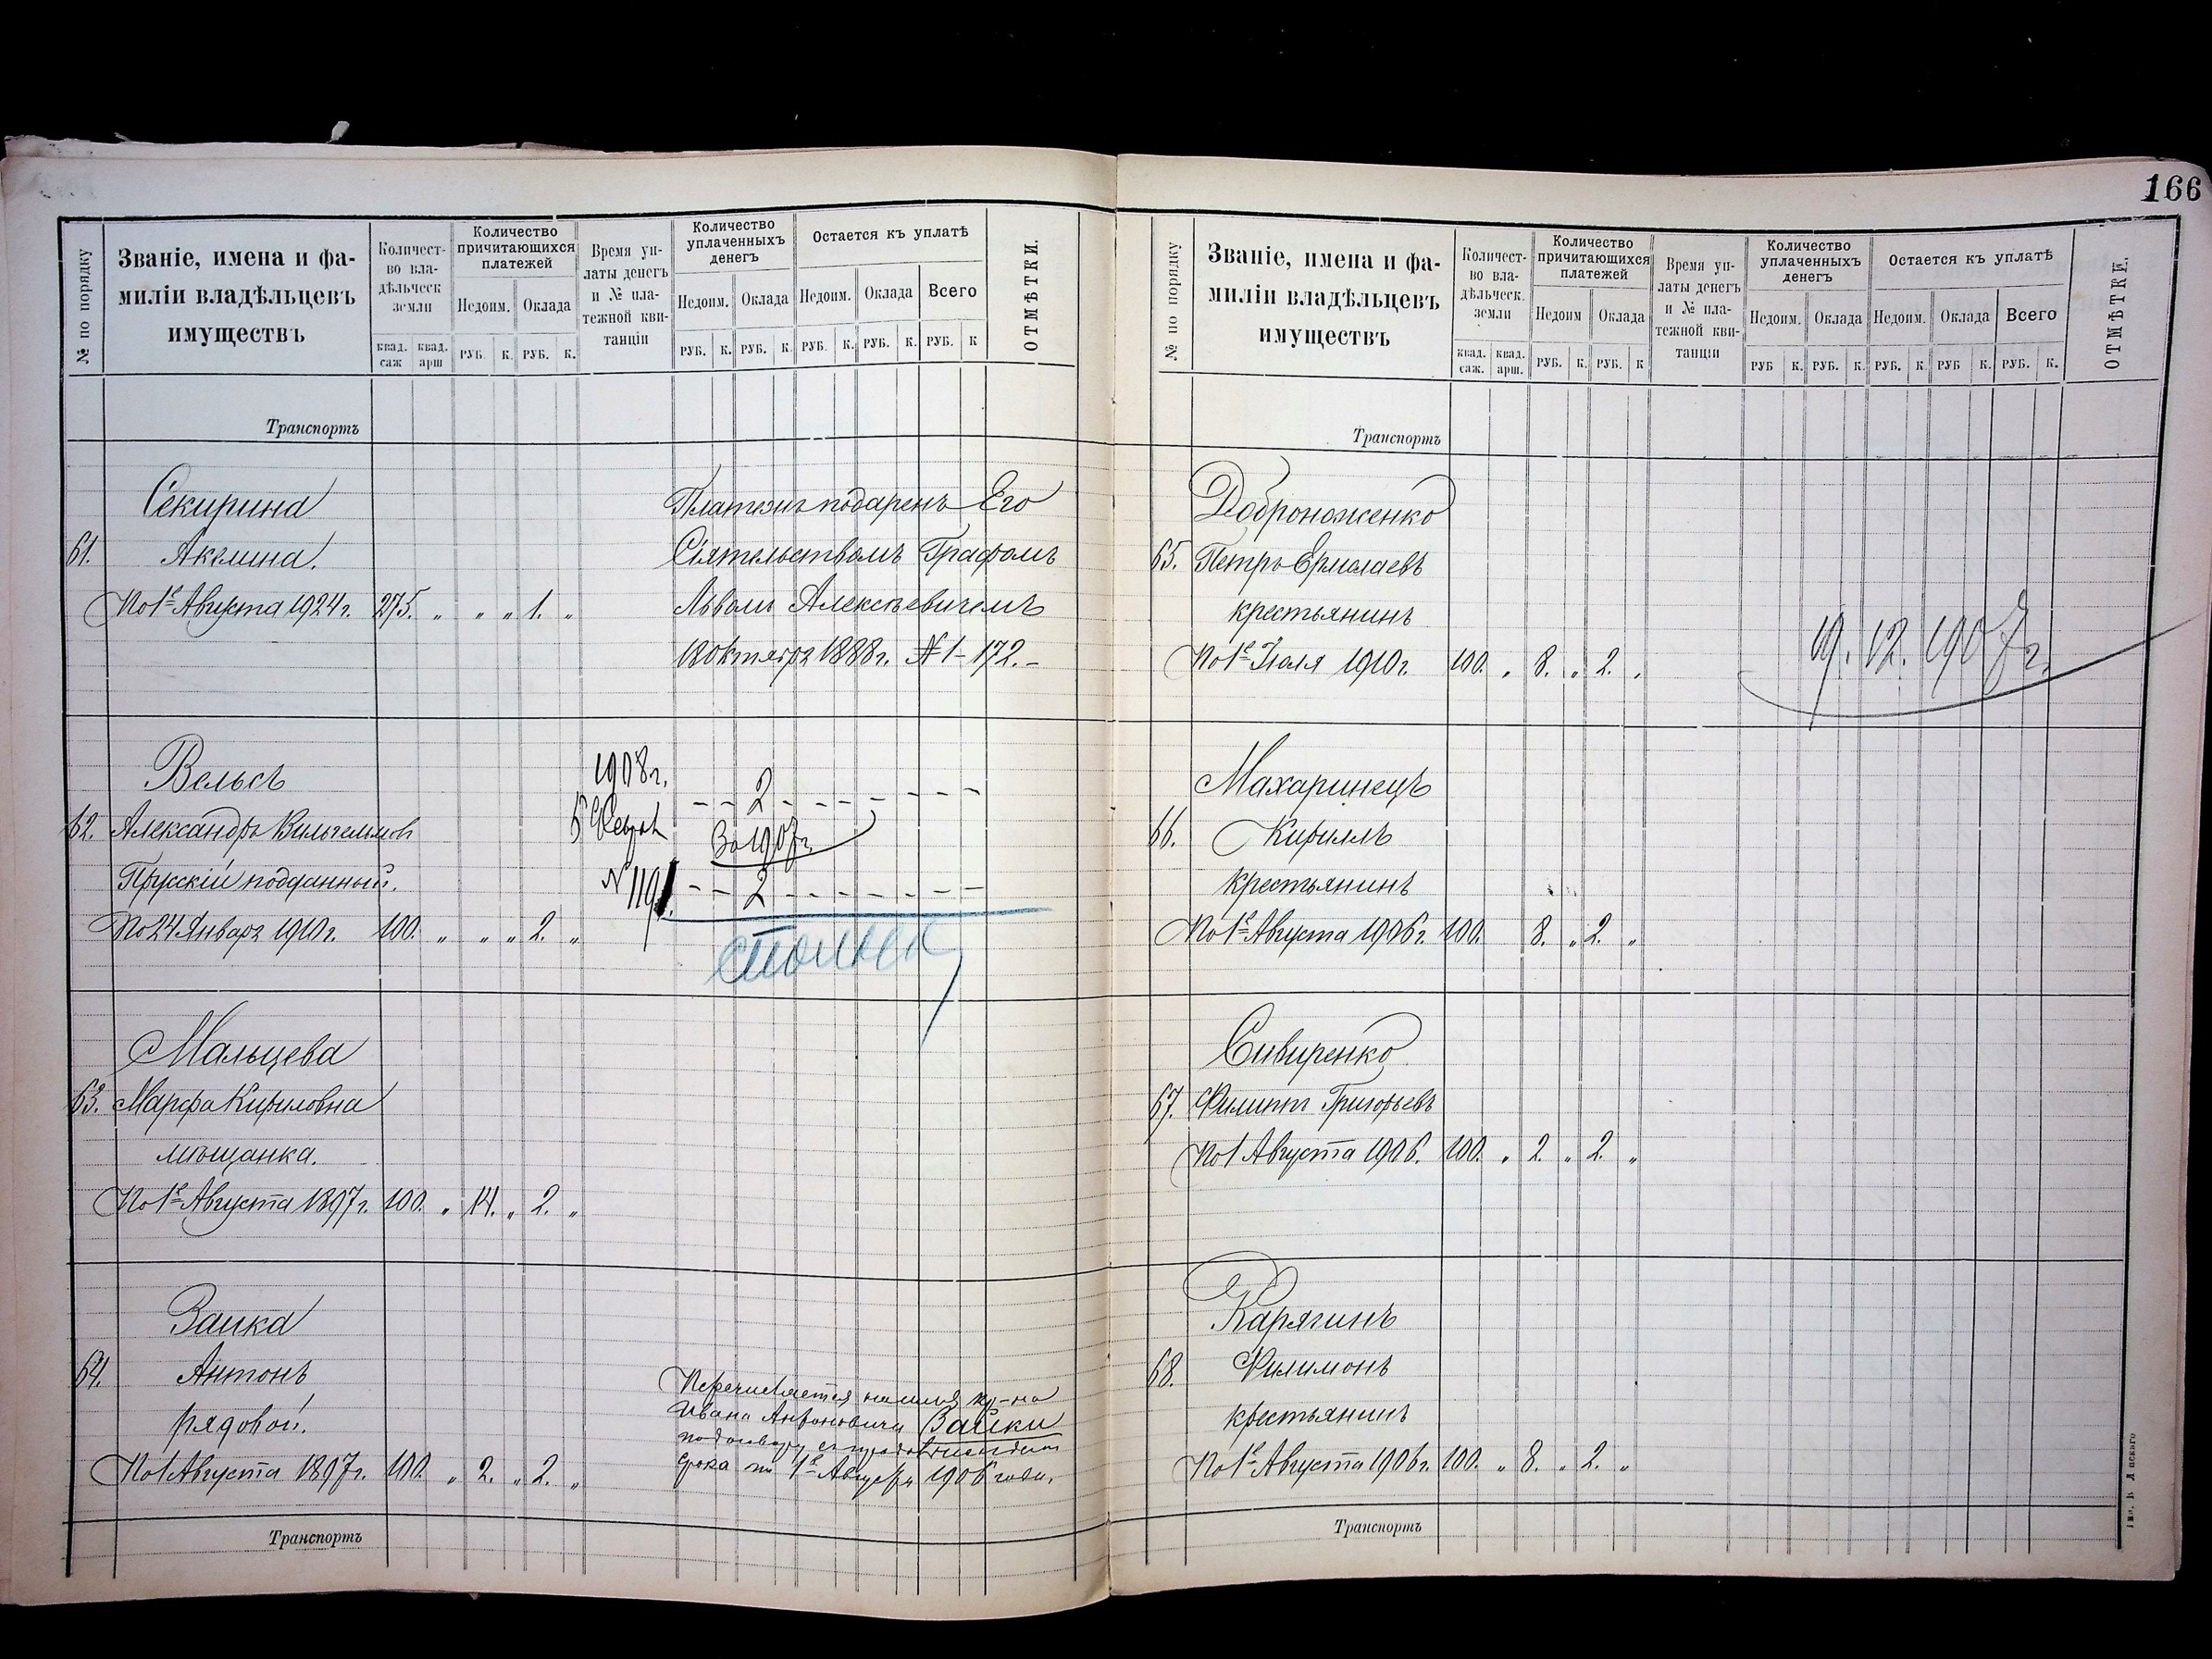 166
№ по порядку
Званіе, имена и фа-
миліи владѣльцевъ
имуществъ
Количест-
во вла-
дѣльческ
земли
квад. саж
квад. арш
Количество
причитающихся
платежей
Недоим.
Оклада
РУБ.
К.
РУБ.
К.
Время уп-
латы денегъ
и № пла-
тежной кви-
танціи
Количество
уплаченныхъ
денегъ
Недоим.
Оклада
РУБ.
К.
РУБ.
К.
Остается къ уплатѣ
Недоим.
Оклада
Всего
РУБ.
К.
РУБ.
К.
РУБ.
К
ОТМѢТКИ.
Транспортъ
Секирина
61. Акелина.
По 1е Августа 1924 г. 275. „ „ „ 1. „
Платежъ подаренъ Его
Сіятельствомъ Графомъ
Львомъ Алексѣевичемъ
12 октября 1888 г. № 1-172.-
Вельсъ
62. Александръ Вильгельмовъ
Прусскій подданный.
По 24 Января 1910 г. 100. „ „ „ 2. „
1908 г.
5 Февраля
№ 119
2
За 1907 г.
2
Мальцева
63. Марфа Кириловна
мѣщанка.
По 1е Августа 1897 г. 100. „ 14. „ 2. „
Заика
64. Антонъ
рядовой.
По 1 Августа 1897 г. 100. „ 2. „ 2. „
Перечисляется на имя
Ивана Антоновича Заики
срока по 1е Августа 1906 года.
Транспортъ
№ по порядку
Званіе, имена и фа-
миліи владѣльцевъ
имуществъ
Количест-
во вла-
дѣльческ.
земли
квад. саж.
квад. арш.
Количество
причитающихся
платежей
Недоим
Оклада
РУБ.
К.
РУБ.
К
Время уп-
латы денегъ
и № пла-
тежной кви-
танціи
Количество
уплаченныхъ
денегъ
Недоим.
Оклада
РУБ
К.
РУБ.
К.
Остается къ уплатѣ
Недоим.
Оклада
Всего
РУБ.
К.
РУБ
К.
РУБ.
К.
ОТМѢТКИ.
Транспортъ
Доброноженко
65. Петръ Ермолаевъ
крестьянинъ
По 1е Іюля 1910 г. 100. „ 8. „ 2. „
19. 12. 1907 г.
Махаринецъ
66. Кириллъ
крестьянинъ
По 1е Августа 1906 г. 100. 8. „ 2. „
Сивиренко
67. Филиппъ Григорьевъ
По 1 Августа 1906. 100. „ 2. „ 2. „
Карягинъ
68. Филимонъ
крестьянинъ
По 1е Августа 1906 г. 100. „ 8. „ 2. „
Транспортъ